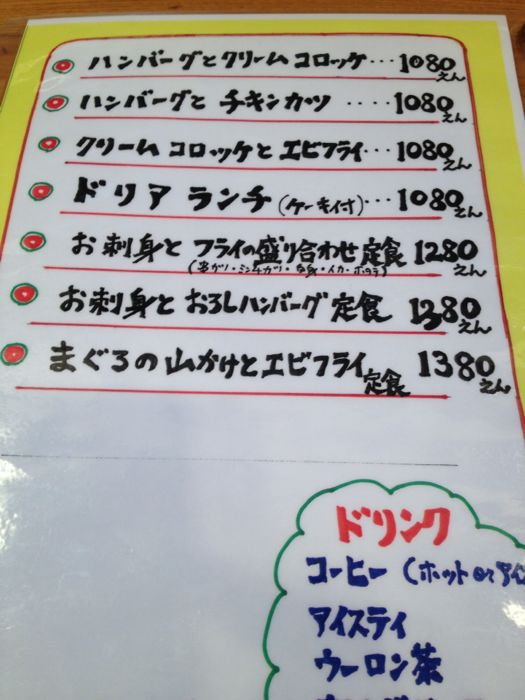 ハンバーグとクリームコロッケ…1080えん
ハンバーグと チキンカツ ‥‥1080えん
クリームコロッケとエビフライ…1080えん
ドリアランチ(ケーキ付)…1080えん
お刺身とフライの盛り合わせ定食 1280えん
お刺身とおろしハンバーグ定食 1380えん
まぐろの山かけとエビフライ定食 1380えん
ドリンク
コーヒー(ホットorアイ
アイスティ
ウーロン茶